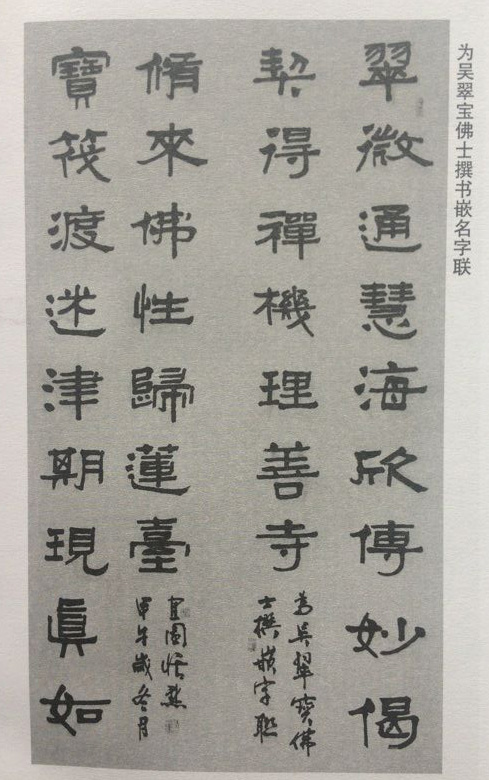 为吴翠宝佛士撰书嵌名字联
翠微通慧海欣傳妙偈
契得禪機理善寺
為吴翠寶佛
士撰嵌字聯
脩來佛性歸蓮臺
甲午歲冬月
寶筏渡迷津期現真如